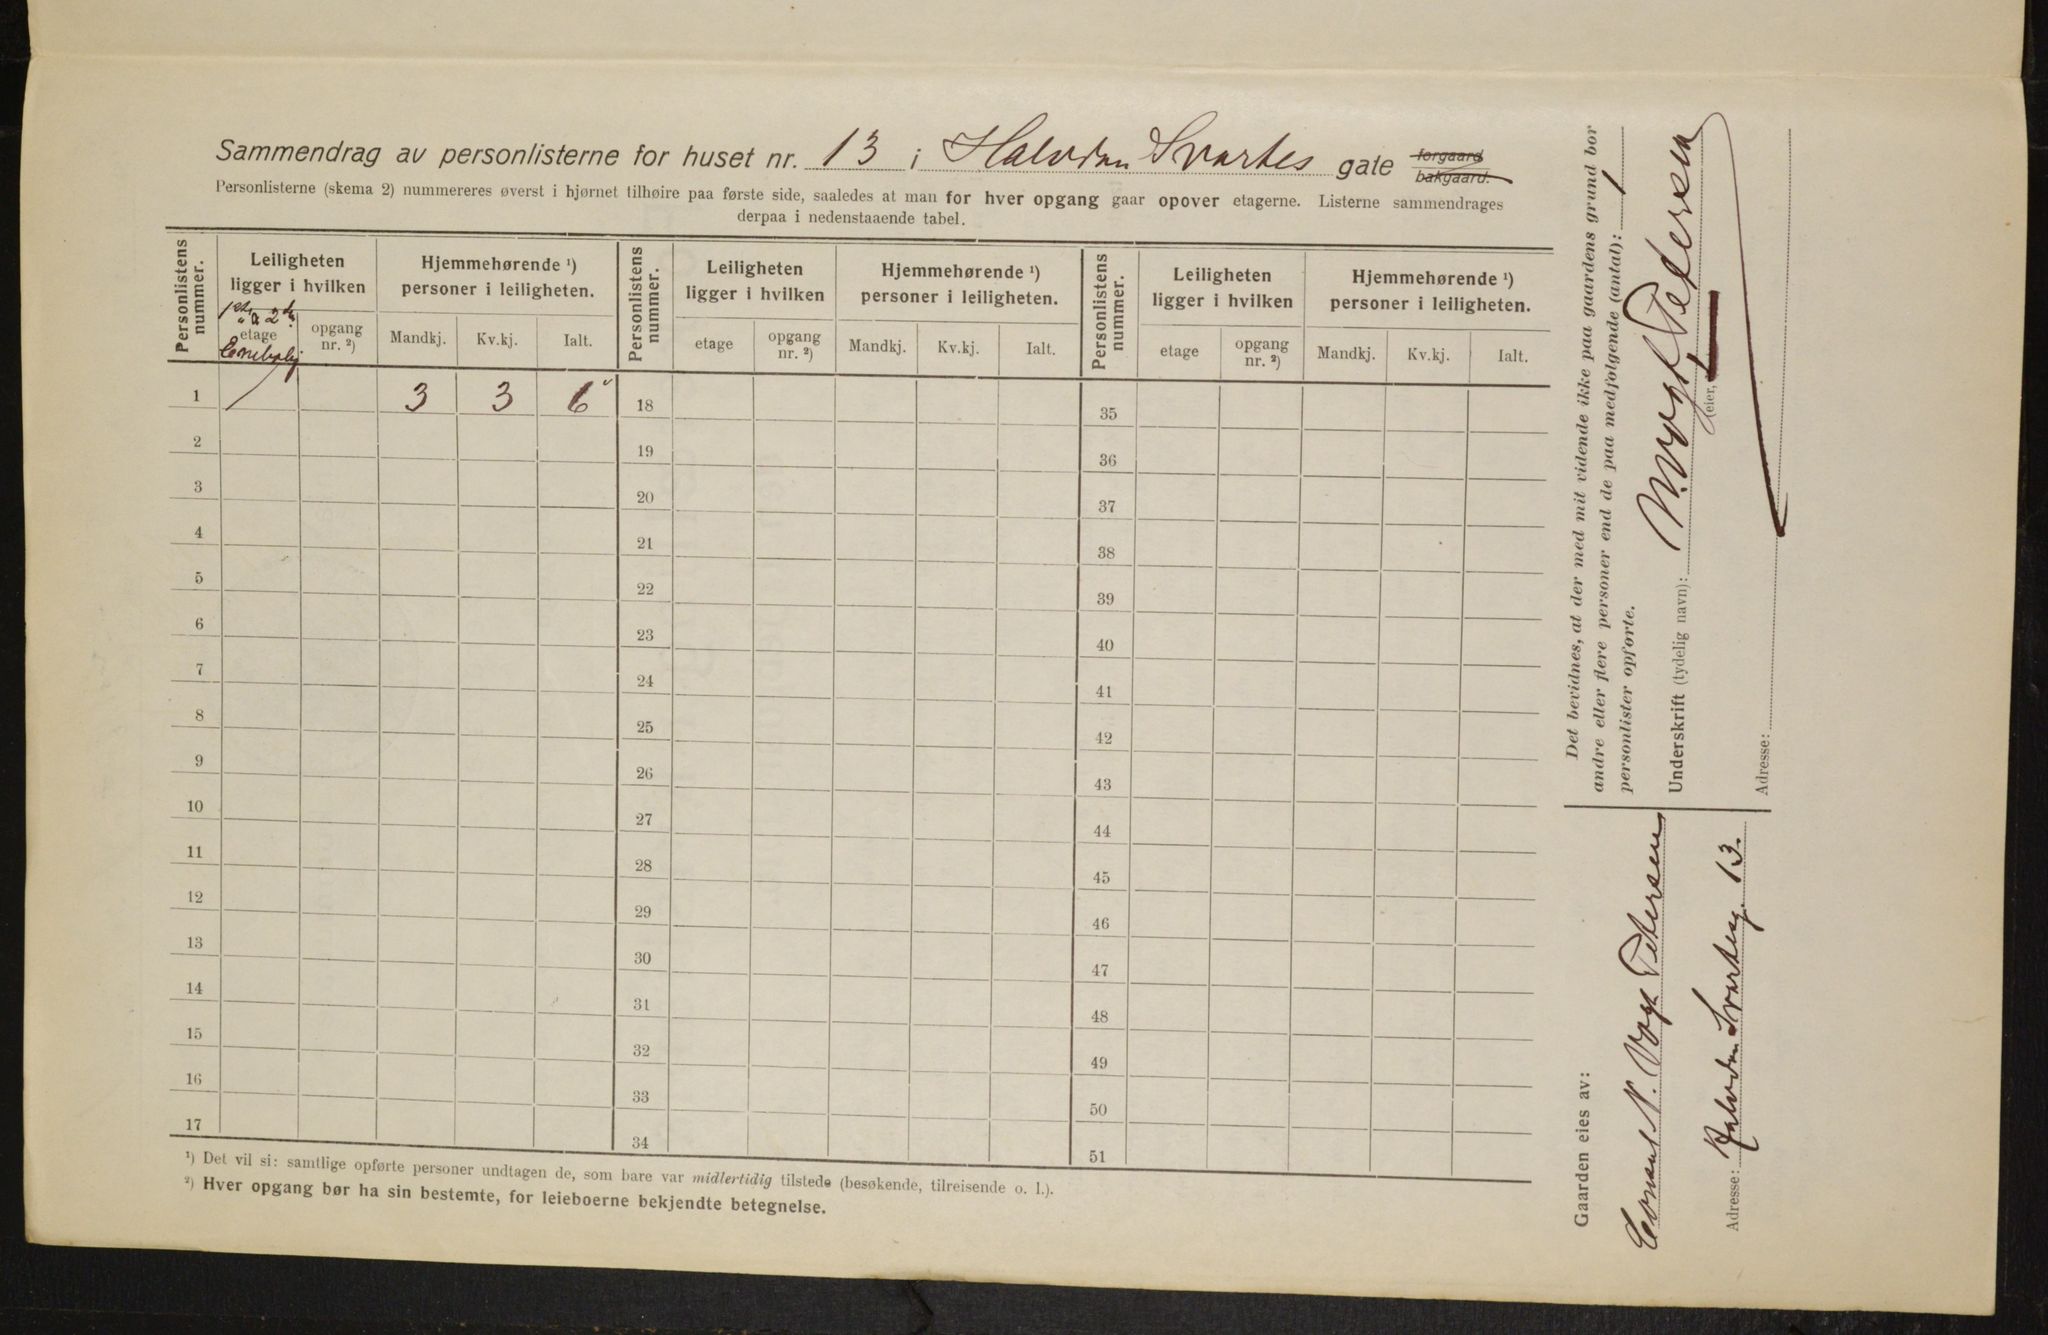 Sammendrag av personlisterne for huset nr. 13 i Halvdan Svartes gate forgaard bakgaard.
Personlisterne (skema 2) nummereres øverst i hjørnet tilhøire paa første side, saaledes at man for hver opgang gaar opover etagerne. Listerne sammendrages
derpaa i nedenstaaende tabel.
Personlistens nummer.
Leiligheten ligger i hvilken
Hjemmehørende ¹) personer i leiligheten.
Personlistens nummer.
Leiligheten ligger i hvilken
Hjemmehørende ¹) personer i leiligheten.
Personlistens nummer.
Leiligheten ligger i hvilken
Hjemmehørende ¹) personer i leiligheten.
etage opgang nr. ²) Mandkj. Kv.kj. Ialt. etage opgang nr. ²) Mandkj. Kv.kj. Ialt. etage opgang nr. ²) Mandkj. Kv.kj. Ialt.
1 3 3 6 18 35
2 19 36
3 20 37
4 21 38
5 22 39
6 23 40
7 24 41
8 25 42
9 26 43
10 27 44
11 28 45
12 29 46
13 30 47
14 31 48
15 32 49
16 33 50
17 34 51
¹) Det vil si: samtlige opførte personer undtagen de, som bare var midlertidig tilstede (besøkende, tilreisende o. l.).
²) Hver opgang bør ha sin bestemte, for leieboerne bekjendte betegnelse.
Det bevidnes, at der med mit vidende ikke paa gaardens grund bor
andre eller flere personer end de paa medfølgende (antal): 1
personlister opførte.
Underskrift (tydelig navn): N. Vogt Petersen
(eier,
Adresse:
Gaarden eies av:
N. Vogt Petersen
Adresse: Halvdan Svartesg. 13.